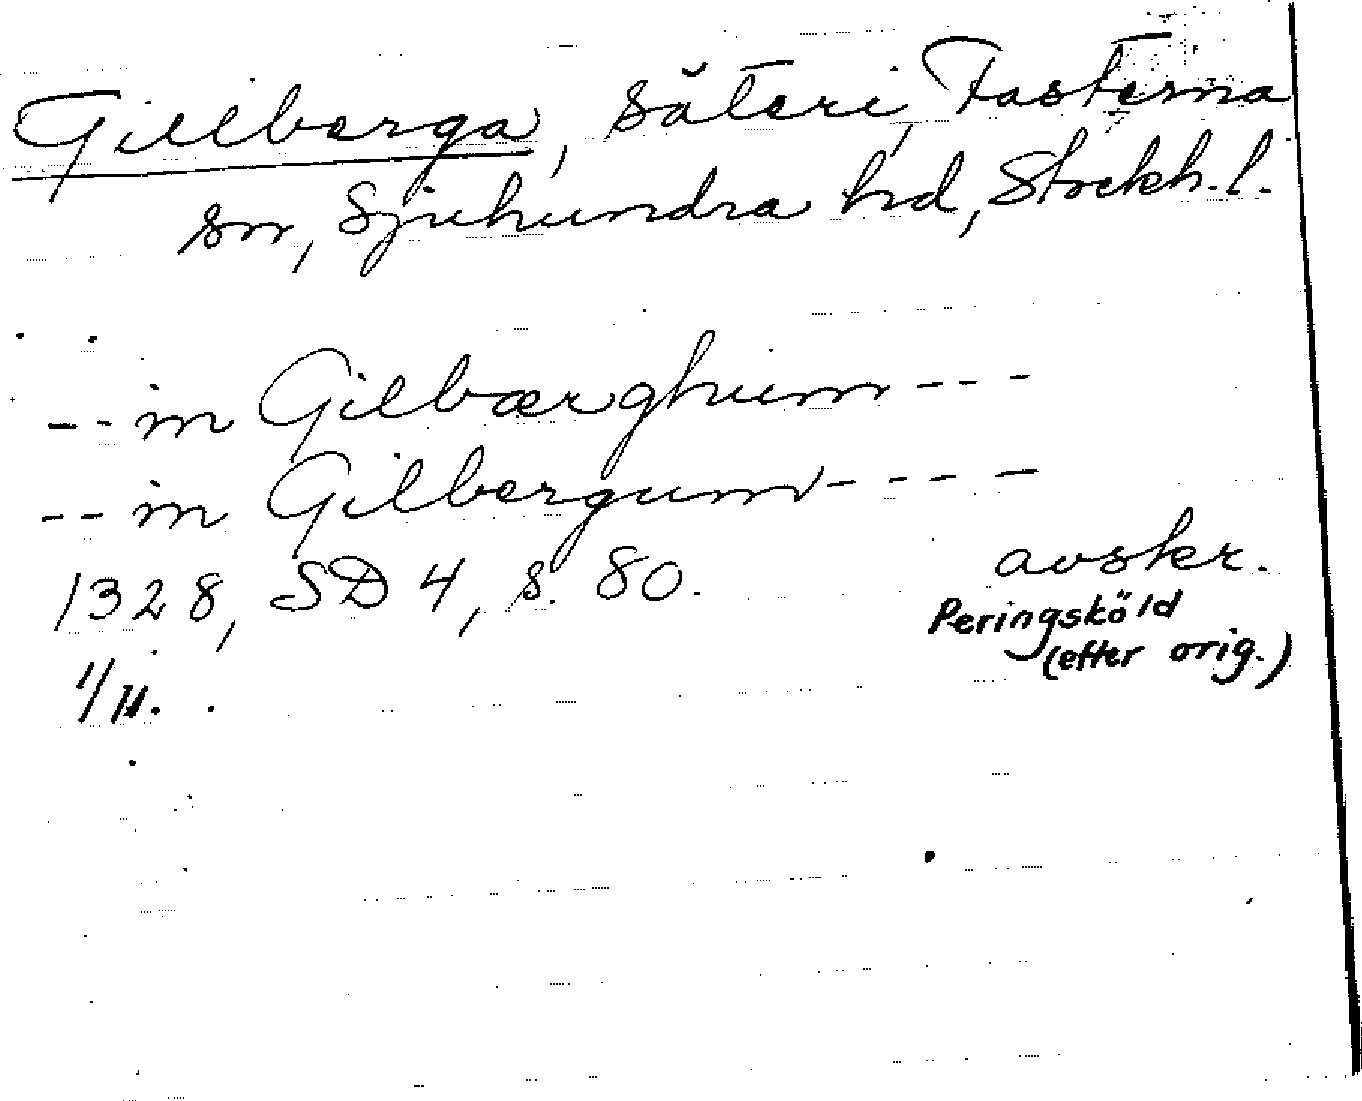 Gillberga, säteri, Fasterna
sn, Sjuhundra hd, Stockh.l.
-- in Gilbærghum ---
-- in Gilbergum ----
1328, SD 4, s. 80. avskr.
Peringsköld
(efter orig.)
1/11.